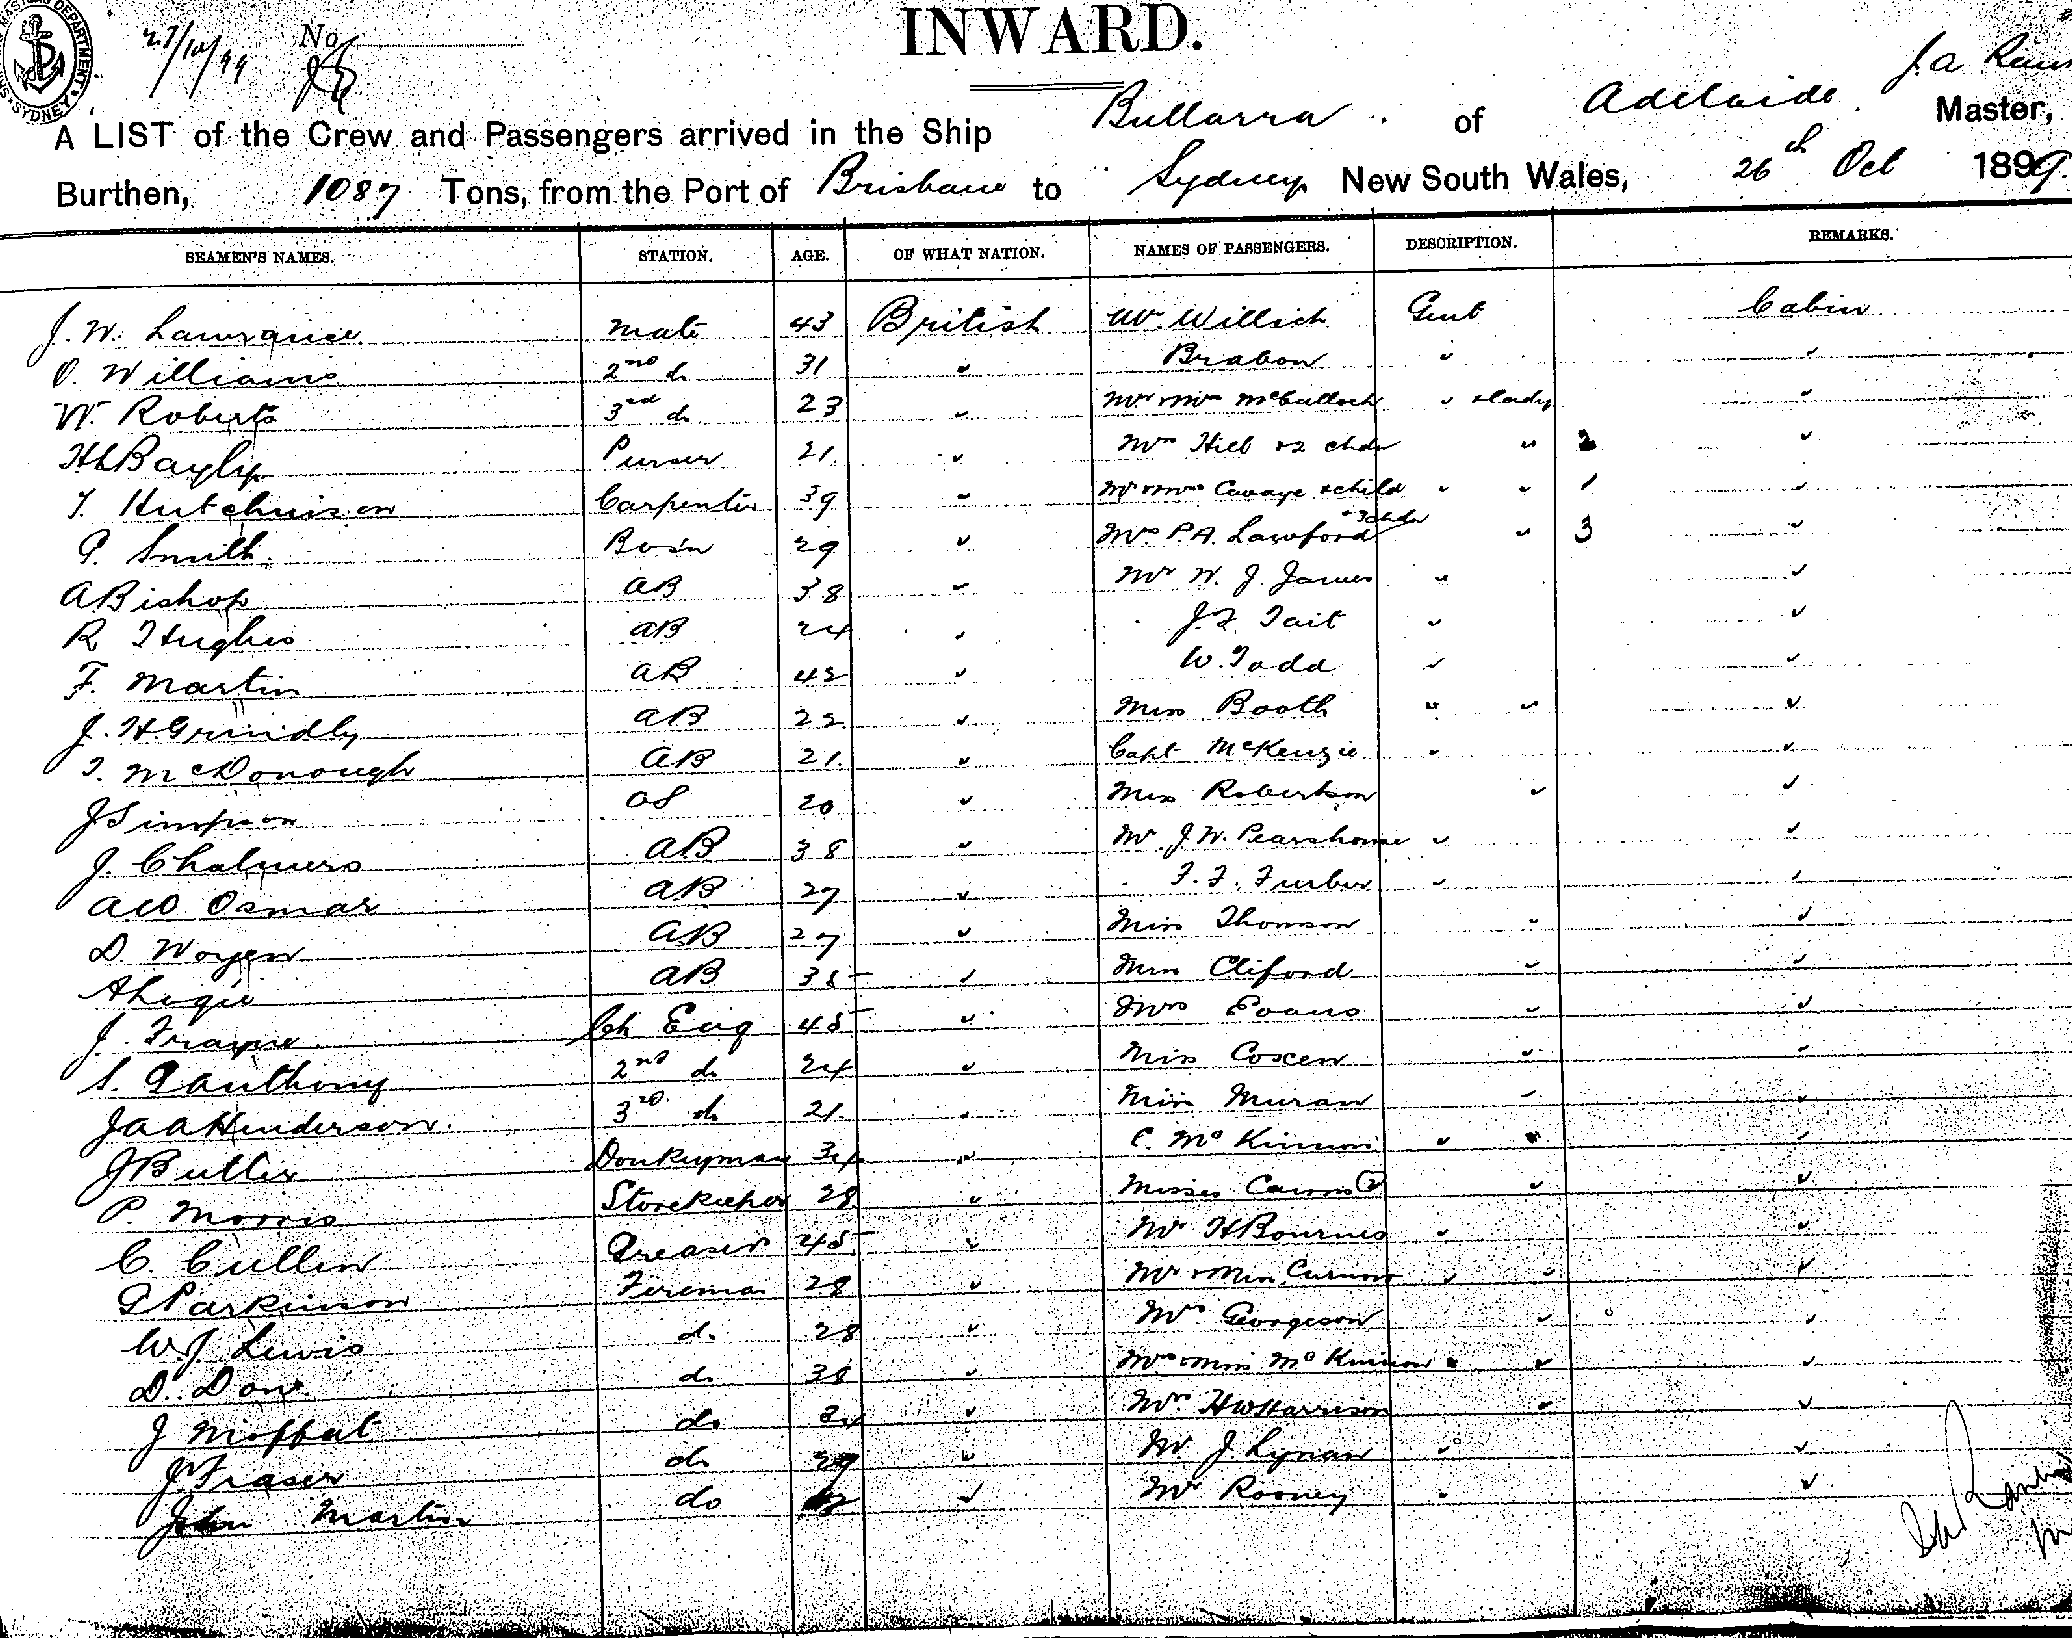 27/10/99 No
INWARD.
J. a
A LIST of the Crew and Passengers arrived in the Ship Bullarra. of Adelaide. Master,
Burthen, 1087 Tons, from the Port of Brisbane to Sydney New South Wales, 26th Oct 1899.
SEAMEN'S NAMES. STATION. AGE. OF WHAT NATION. NAMES OF PASSENGERS. DESCRIPTION. REMARKS.
J. W. Lawrance Mate 43 British Mr. Willich Gent Cabin
O. Williams 2nd do 31 " Brabon " "
W. Roberts 3rd do 23 " Mr & Mrs McCulloch " & lady "
HLBayly Purser 21 " Mrs Hill & 2 chdn " 2 "
T. Hutchinson Carpenter 39 " Mr & Mrs Cavaye & child " " 1 "
P. Smith Bosn 29 " Mrs P.A. Lawford + 3 chdn " 3 "
A Bishop AB 38 " Mr W. J. James " "
R Hughes AB 24 " J. F. Tait " "
F. Martin AB 42 " W. Todd " "
J. H Grindly AB 22 " Miss Booth " " "
T. McDonough AB 21 " Capt McKenzie " "
J Simpson OS 20 " Miss Robertson " "
J. Chalmers AB 38 " Mr J. W. Pearshouse " "
A W Osmar AB 27 " F. F. Furber " "
D Woyen AB 27 " Miss Thomson " "
A Logie AB 35 " Miss Cliford " "
J. Frayne Ch Eng 45 " Mrs Evans " "
S. Ganthony 2nd do 24 " Miss Coxen " "
J A A Henderson 3rd do 21 " Miss Muran " "
J Butler Donkeyman 34 " C. McKinnon " " "
P. Morris Storekeeper 28 " Misses Cairns (2) " "
C. Cullen Greaser 45 " Mr H Bournes " "
G Parkinson Fireman 28 " Mr & Miss Curnow " " "
W. J. Lewis do 28 " Mrs Georgeson " "
D. Dow do 38 " Mrs & Miss McKinnon " " "
J Moffat do 34 " Mrs H W Harrison " "
J. Fraser do 29 " Mr J. Lynan " "
John Martin do " Mr Rooney " "